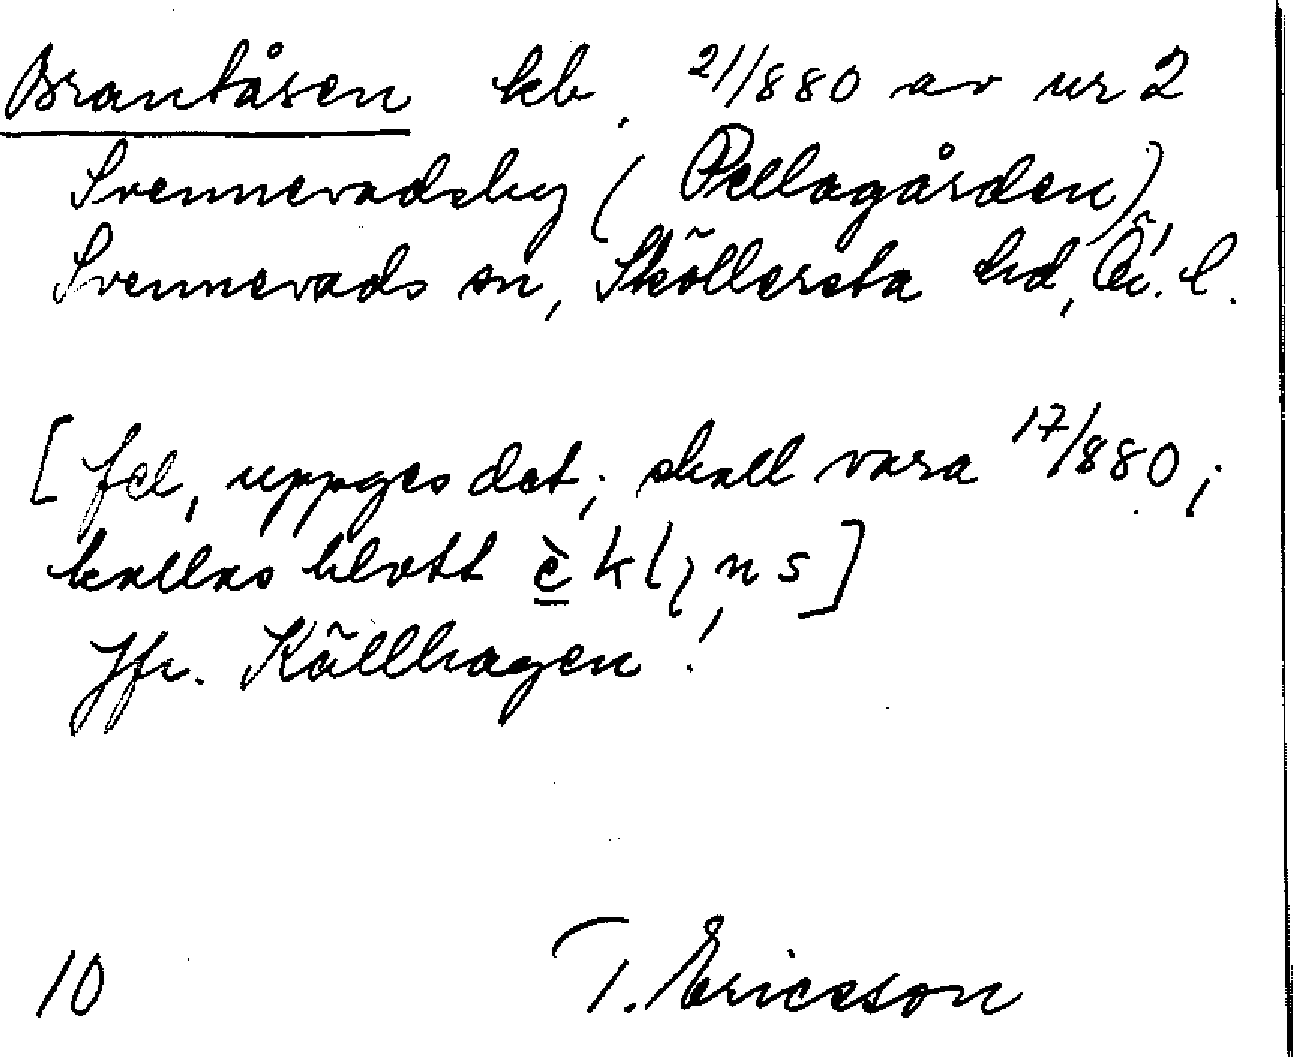 Brantåsen hb. 21/880 av nr 2
Svennevadsby (Pellagården),
Svennevads sn, Sköllersta hd, Ö. l.
[fel, uppges det; skall vara 17/880;
kallas blott
Jfr. Källhagen!
10 T. Ericsson